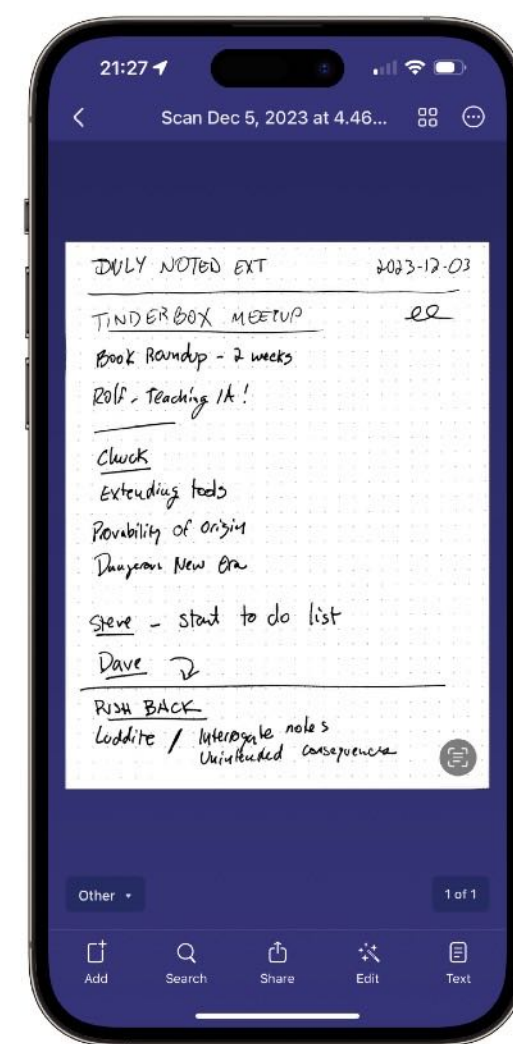 21:27
Scan Dec 5, 2023 at 4.46...
DULY NOTED EXT 2023-12-03
TINDERBOX MEETUP ee
Book Roundup - 2 weeks
Rolf - Teaching IA!
Chuck
Extending tools
Provability of origin
Dangerous New Era
Steve - start to do list
Dave
PUSH BACK
Luddite / Interrogate notes
Unintended consequences
Other
1 of 1
Add Search Share Edit Text